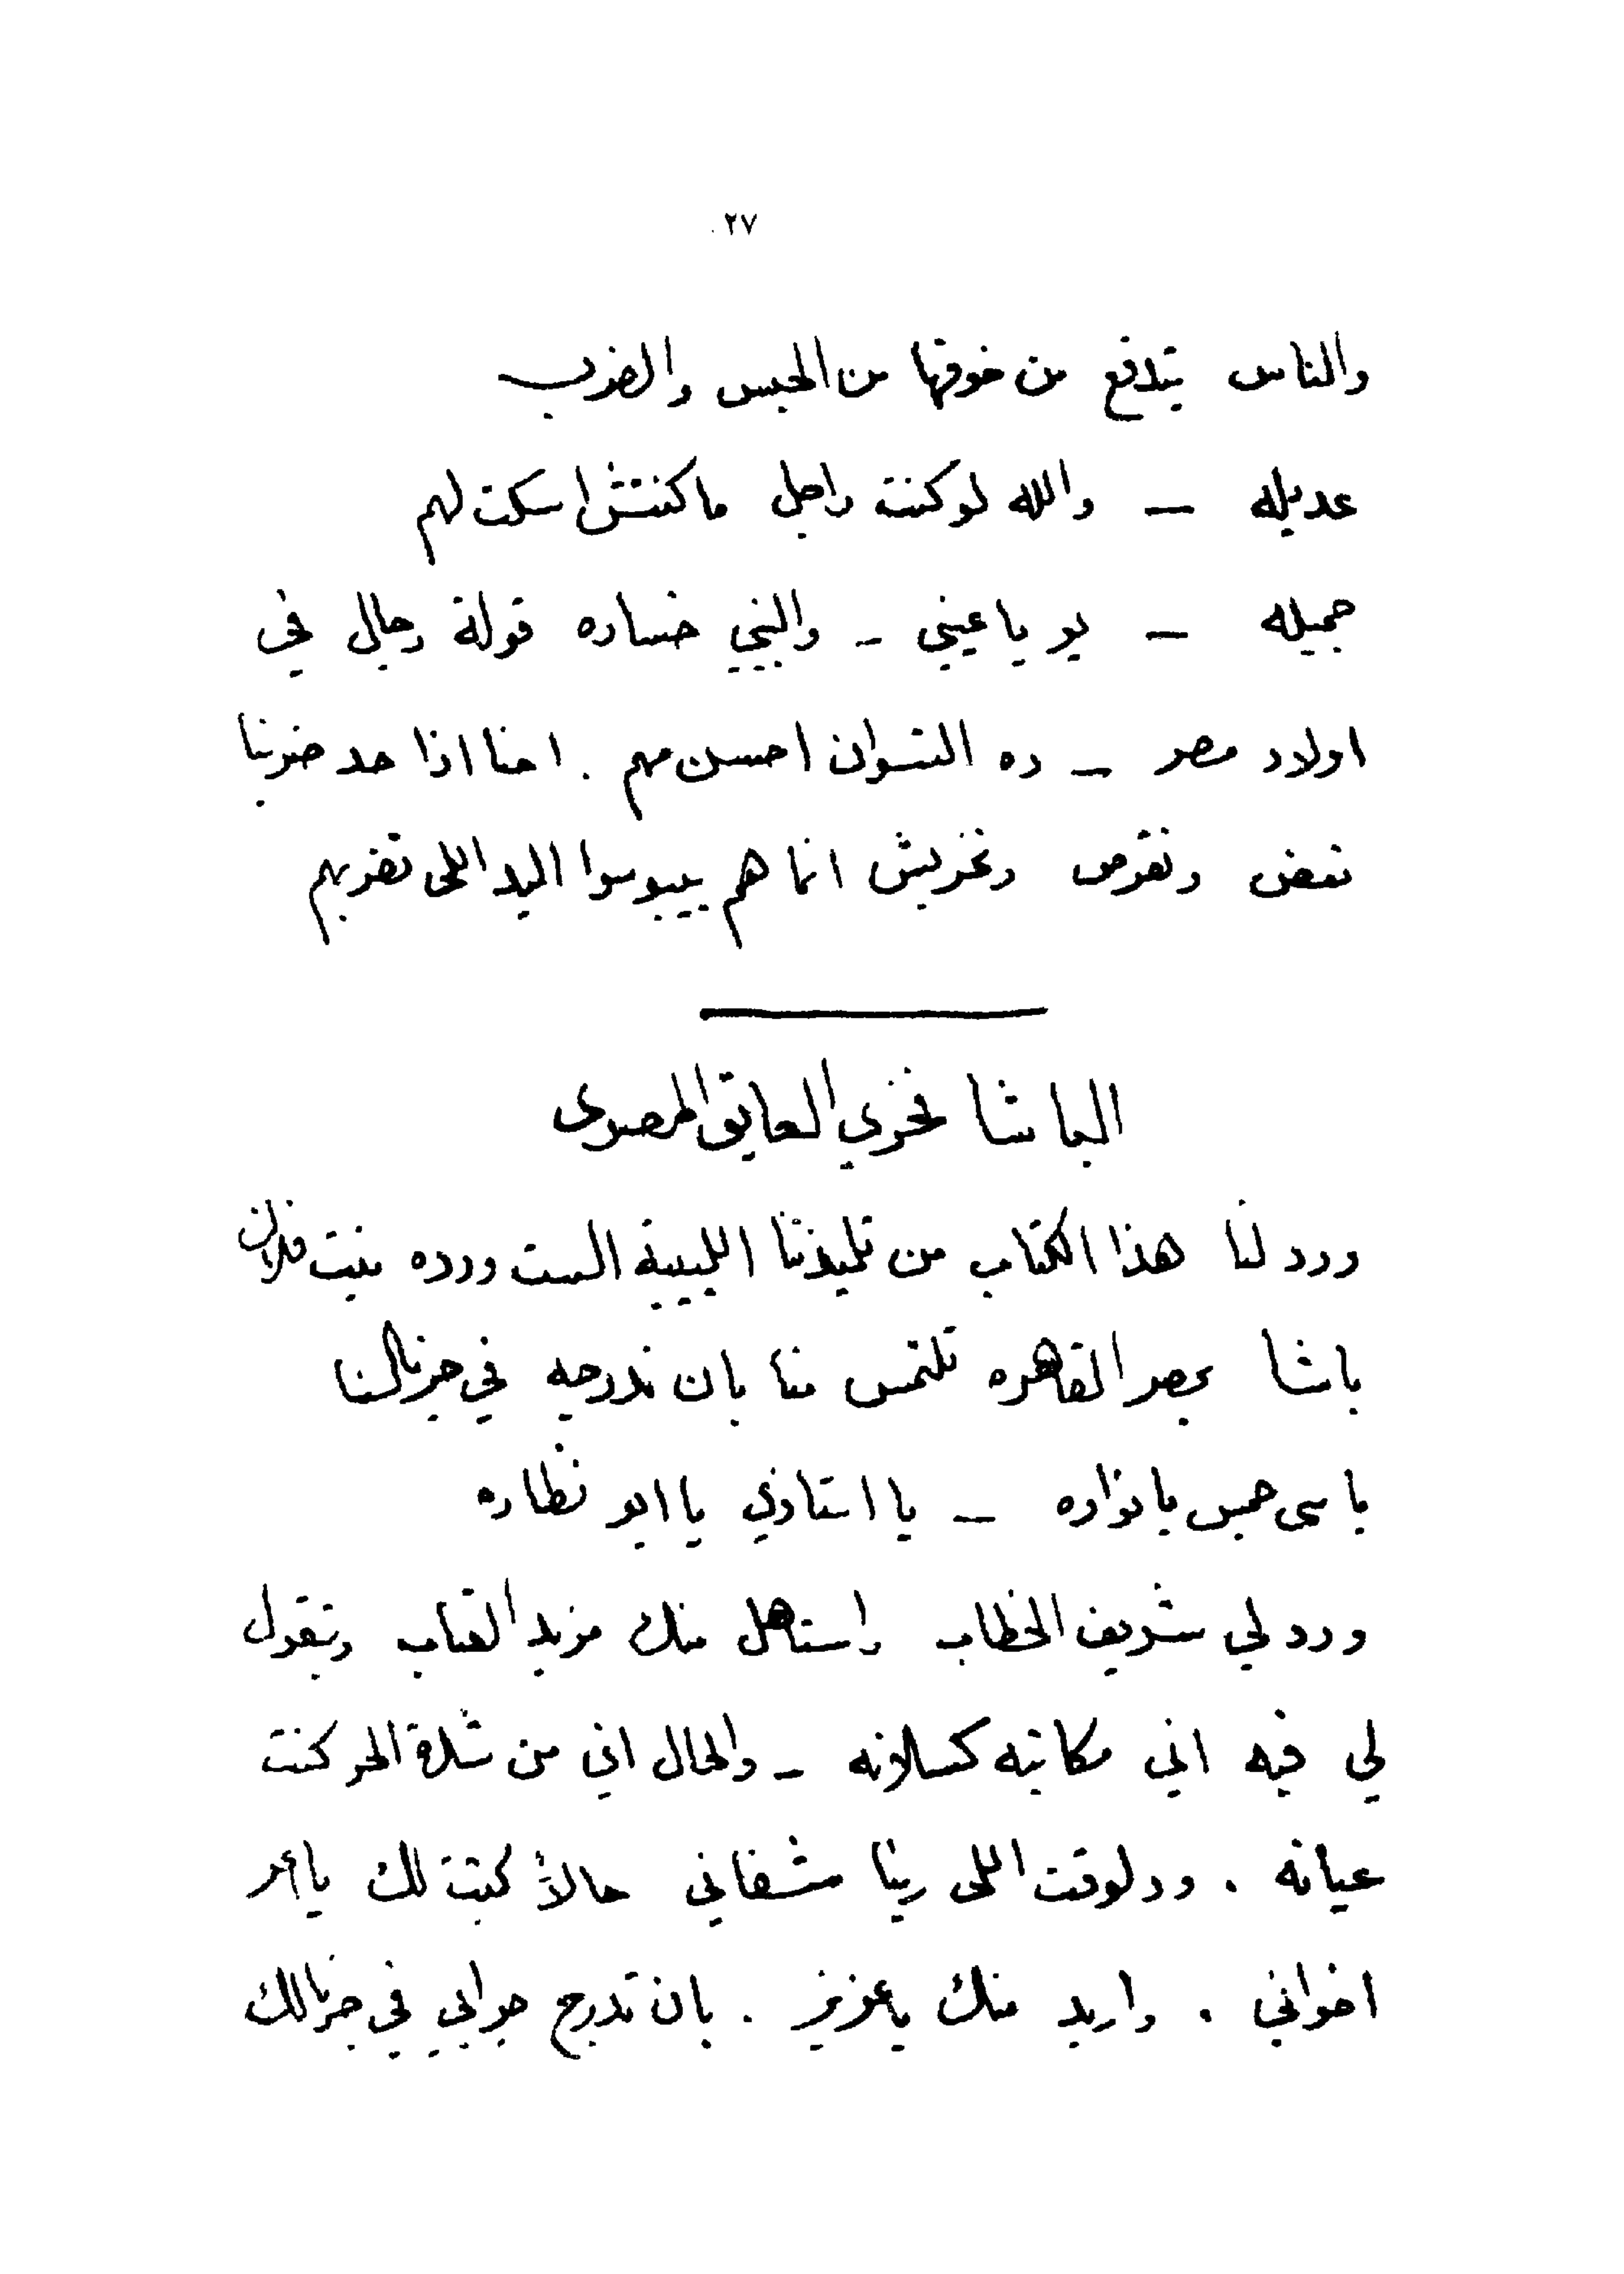 ٢٧
والناس بتدفع من خوفها من الحبس والضرب
عديله — والله لو كنت راجل ما كنتش اسكت لهم
جميله — يو يا عيني - والنبي خساره قولة رجال في
اولاد مصر — ده النسوان احسن منهم . احنا اذا حد ضربنا
نعض ونقرص ونخربش انما هم بيبوسوا اليد اللي تضربهم
الباشا نخزي العايق المصرى
ورد لنا هذا الكتاب من تلميذتنا اللبيبة الست ورده بنت فلان
باشا بمصر القاهره تلتمس منا بان ندرجه في جرنالنا
يا سى حبس يا نواره — يا استاذي يا ابو نظاره
ورد لي شريف الخطاب واستاهل منك مزيد العتاب وتقول
لي فيه اني مكاتبه كسلانه - والحال اني من شدة الحر كنت
عيانه . ودلوقت اللى ربنا شفاني حالاً كتبت لك يا اعز
اخواني . واريد منك يا عزيز . بان تدرج جوابي في جرنالك